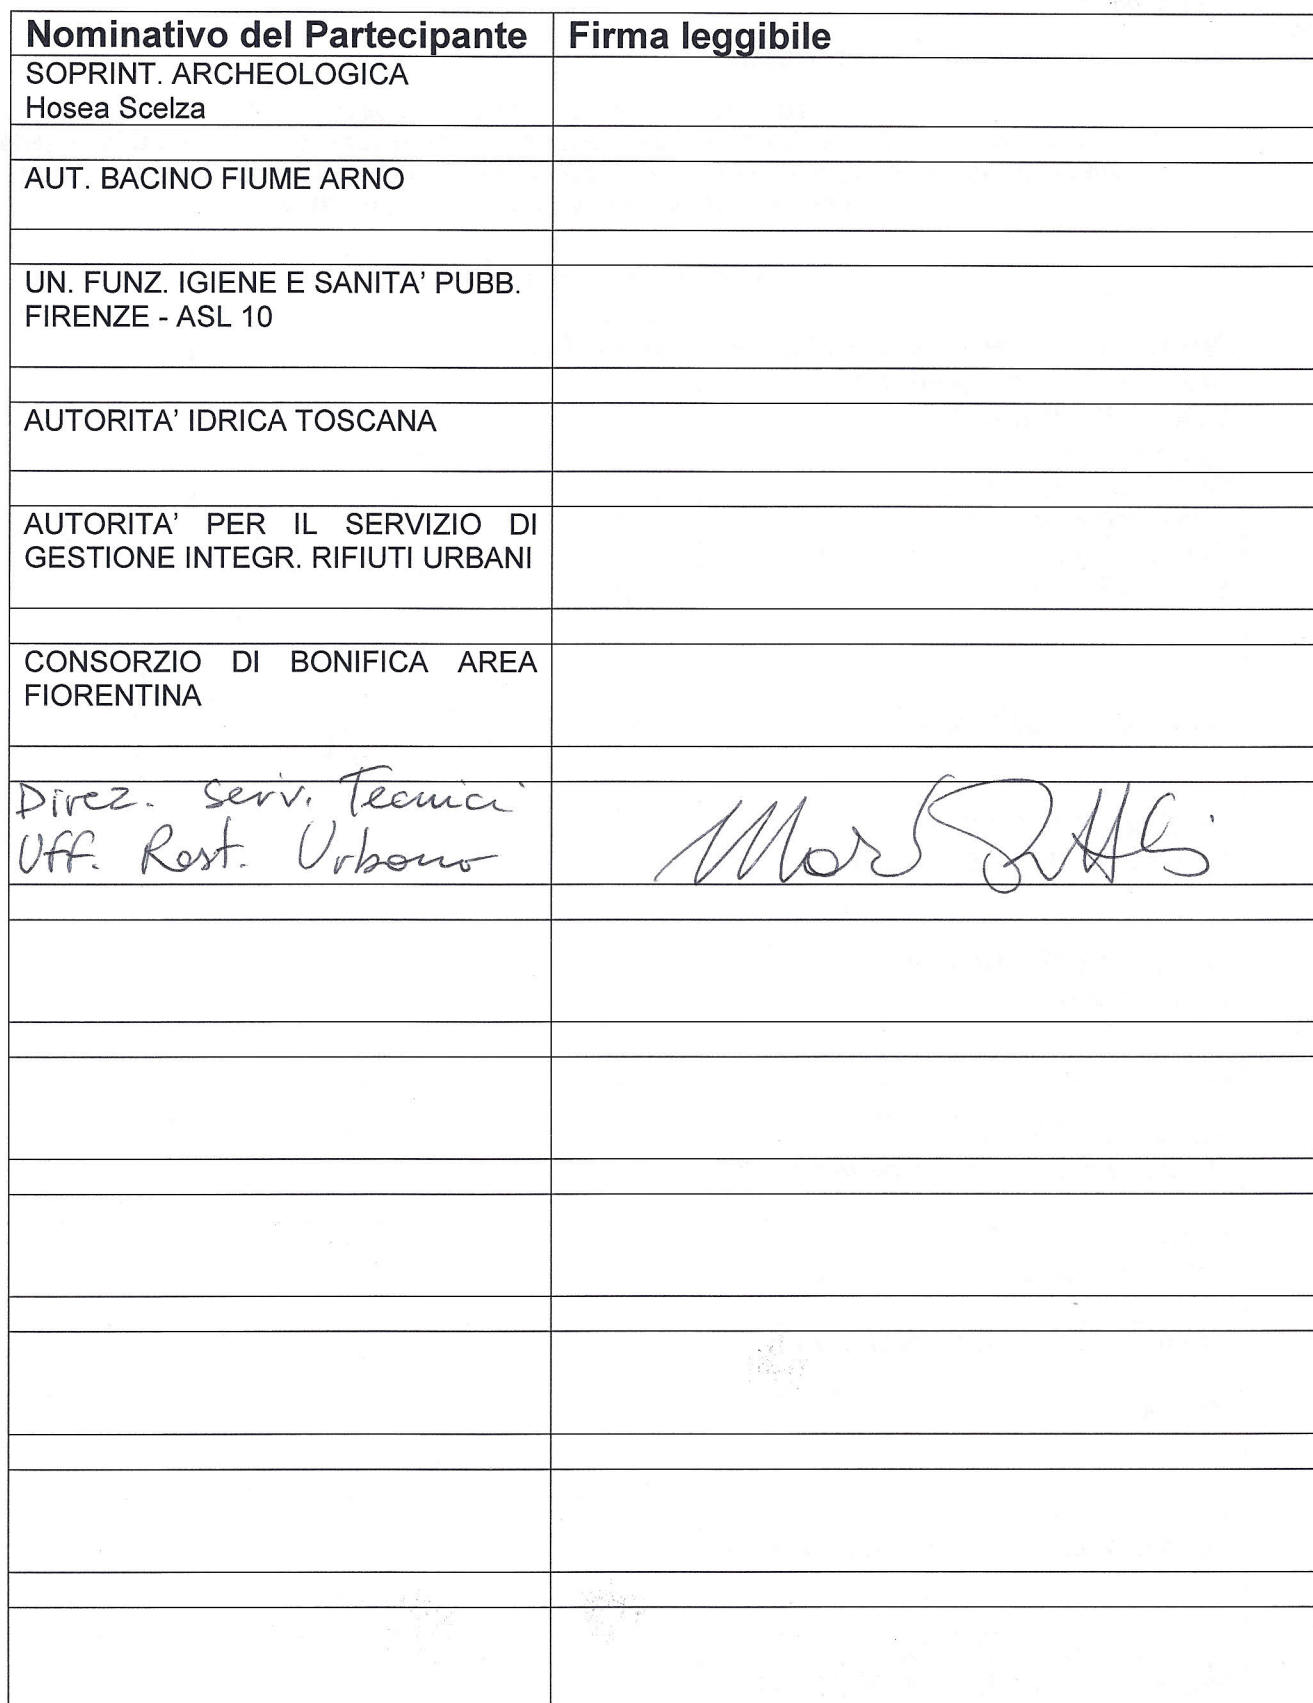 Nominativo del Partecipante Firma leggibile
SOPRINT. ARCHEOLOGICA
Hosea Scelza
AUT. BACINO FIUME ARNO
UN. FUNZ. IGIENE E SANITA' PUBB.
FIRENZE - ASL 10
AUTORITA' IDRICA TOSCANA
AUTORITA' PER IL SERVIZIO DI
GESTIONE INTEGR. RIFIUTI URBANI
CONSORZIO DI BONIFICA AREA
FIORENTINA
Direz. Serv. Tecnici
Uff. Rest. Urbano